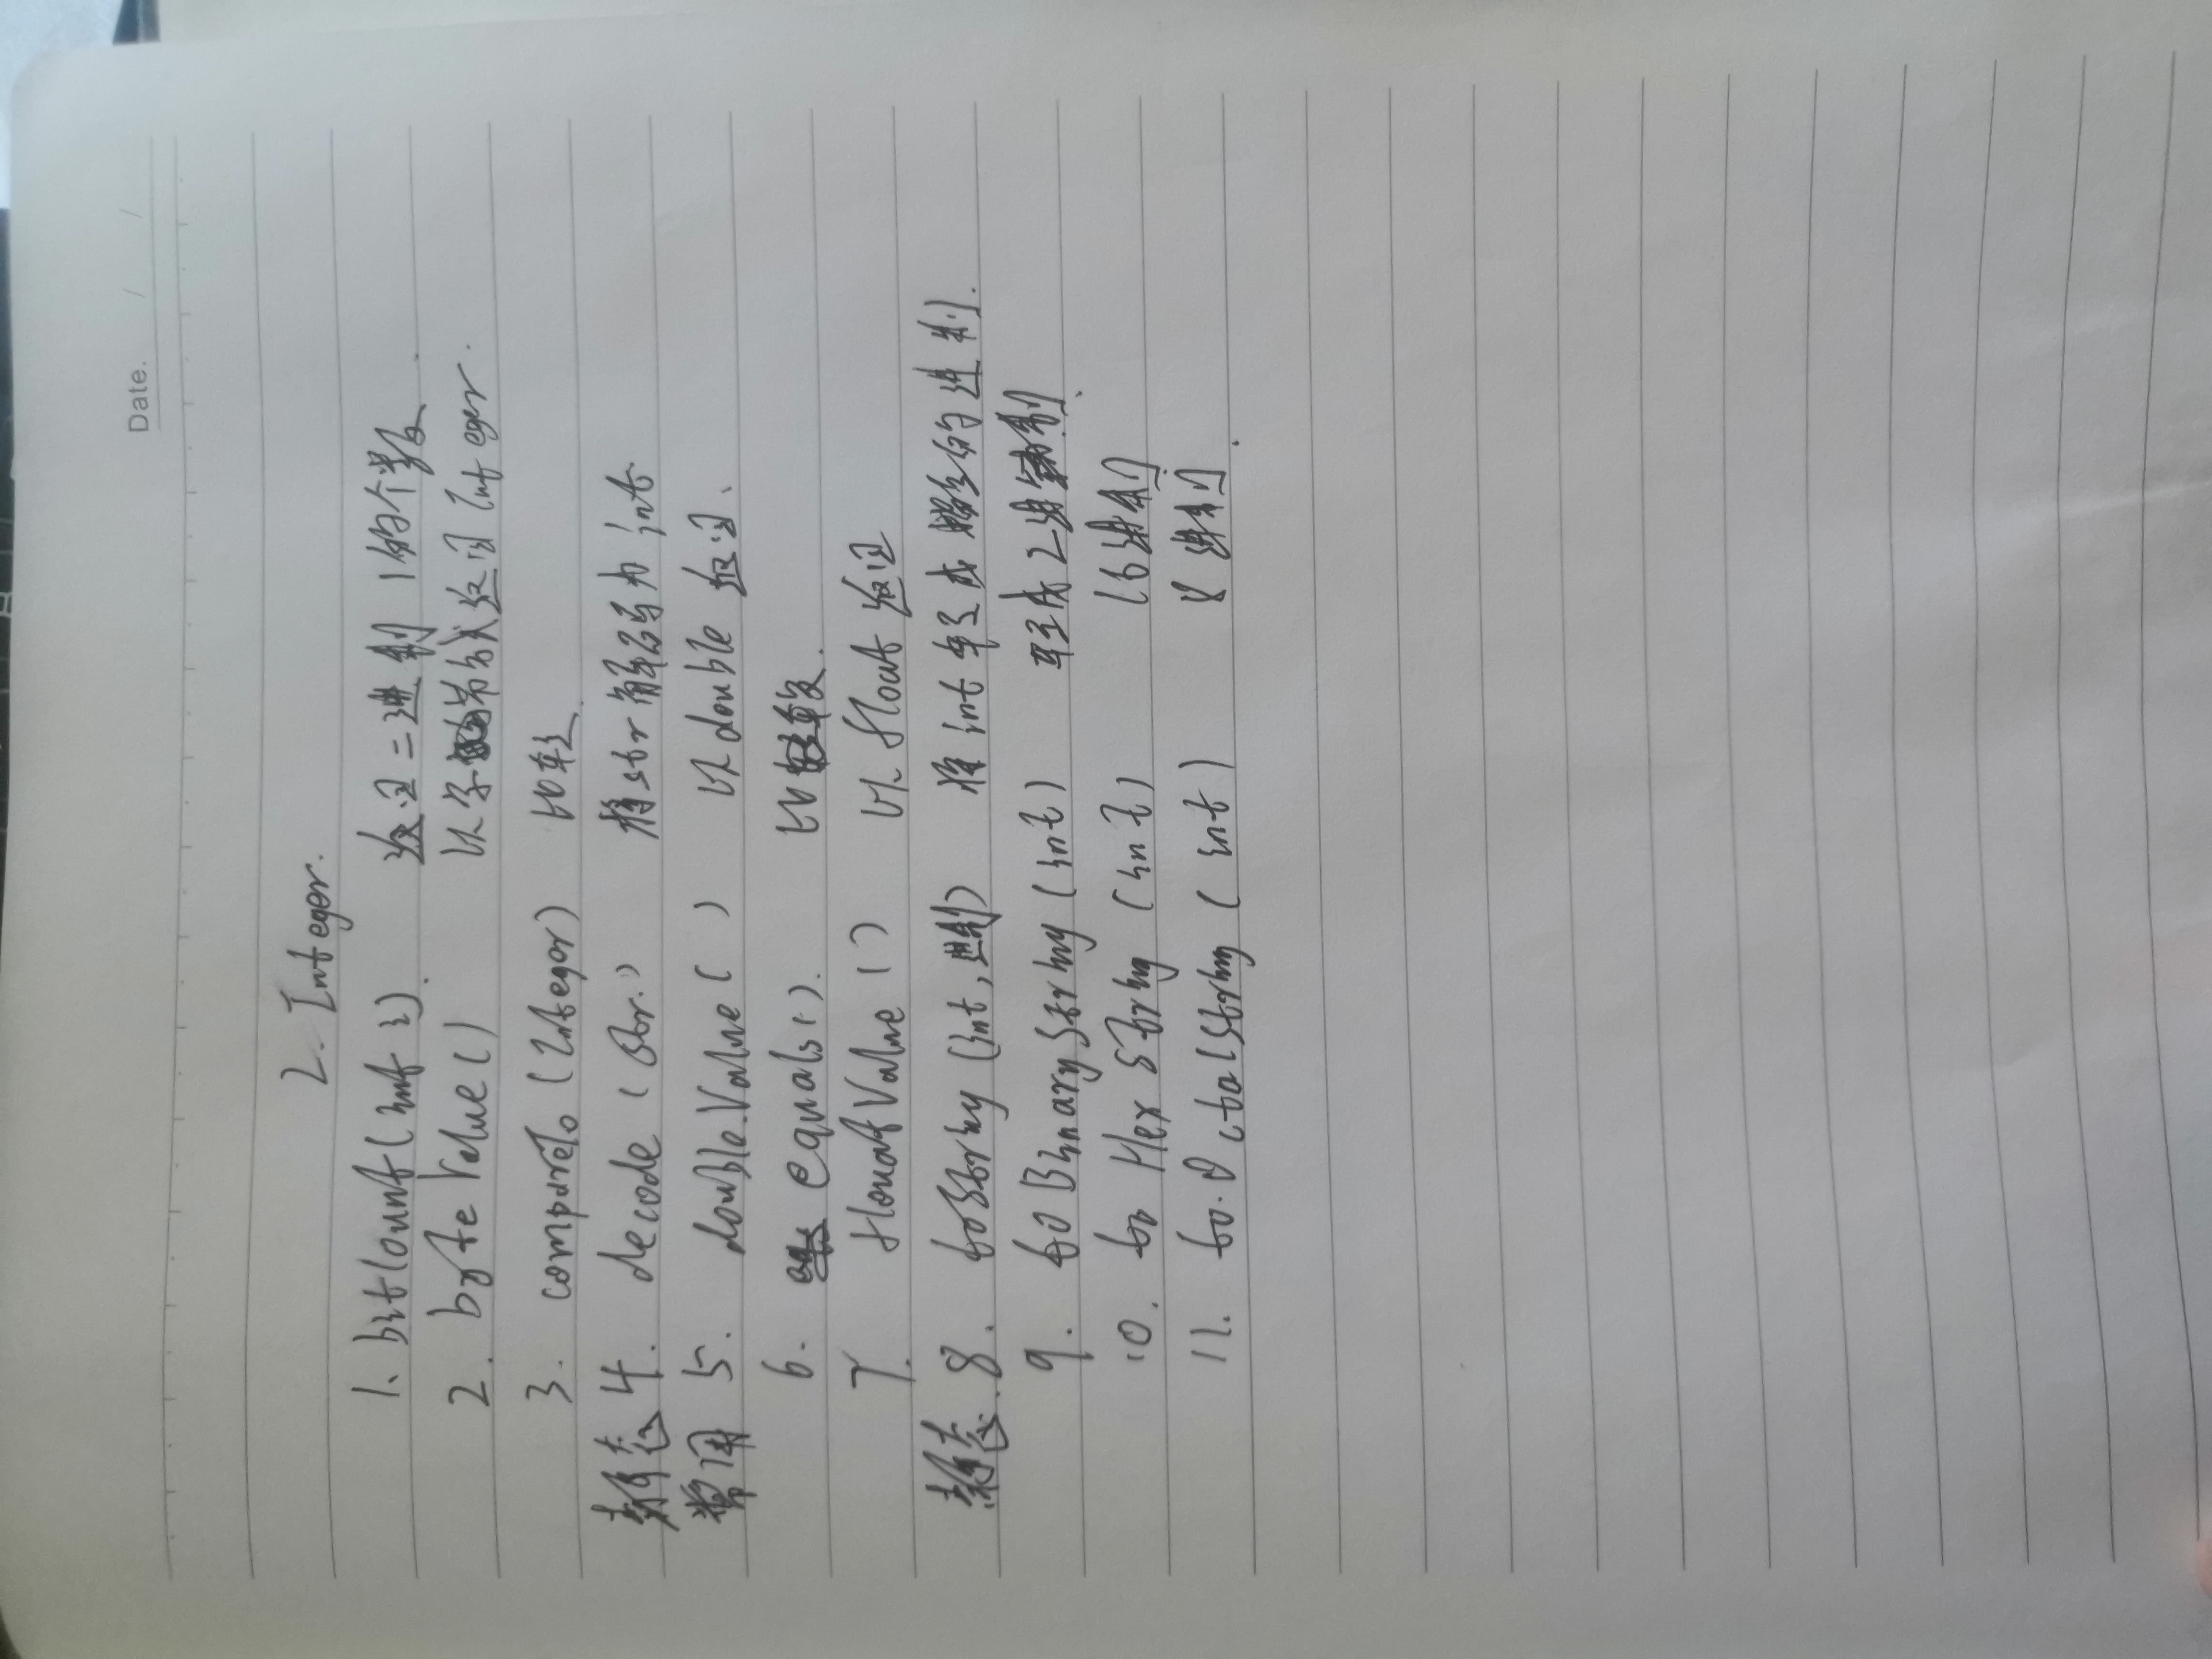 Date. / /
2. Integer.
1、bitCount(int i). 返回二进制 1的个数.
2. byteValue() 以字节方式返回 Integer.
3. compareTo (Integer) 比较.
静态 4. decode (Str.) 将str解码为 int
常用 5. double.Value( ) 以double 返回、
6. equals(). 比较.
7. flouatValue () 以 float 返回
静态. 8. toString (int,进制) 将 int 转成 指定的 进制.
9. to BinaryString (int) 转成2进制、
10. to Hex String (int) 16进制
11. to.OctalString (int) 8 进制.